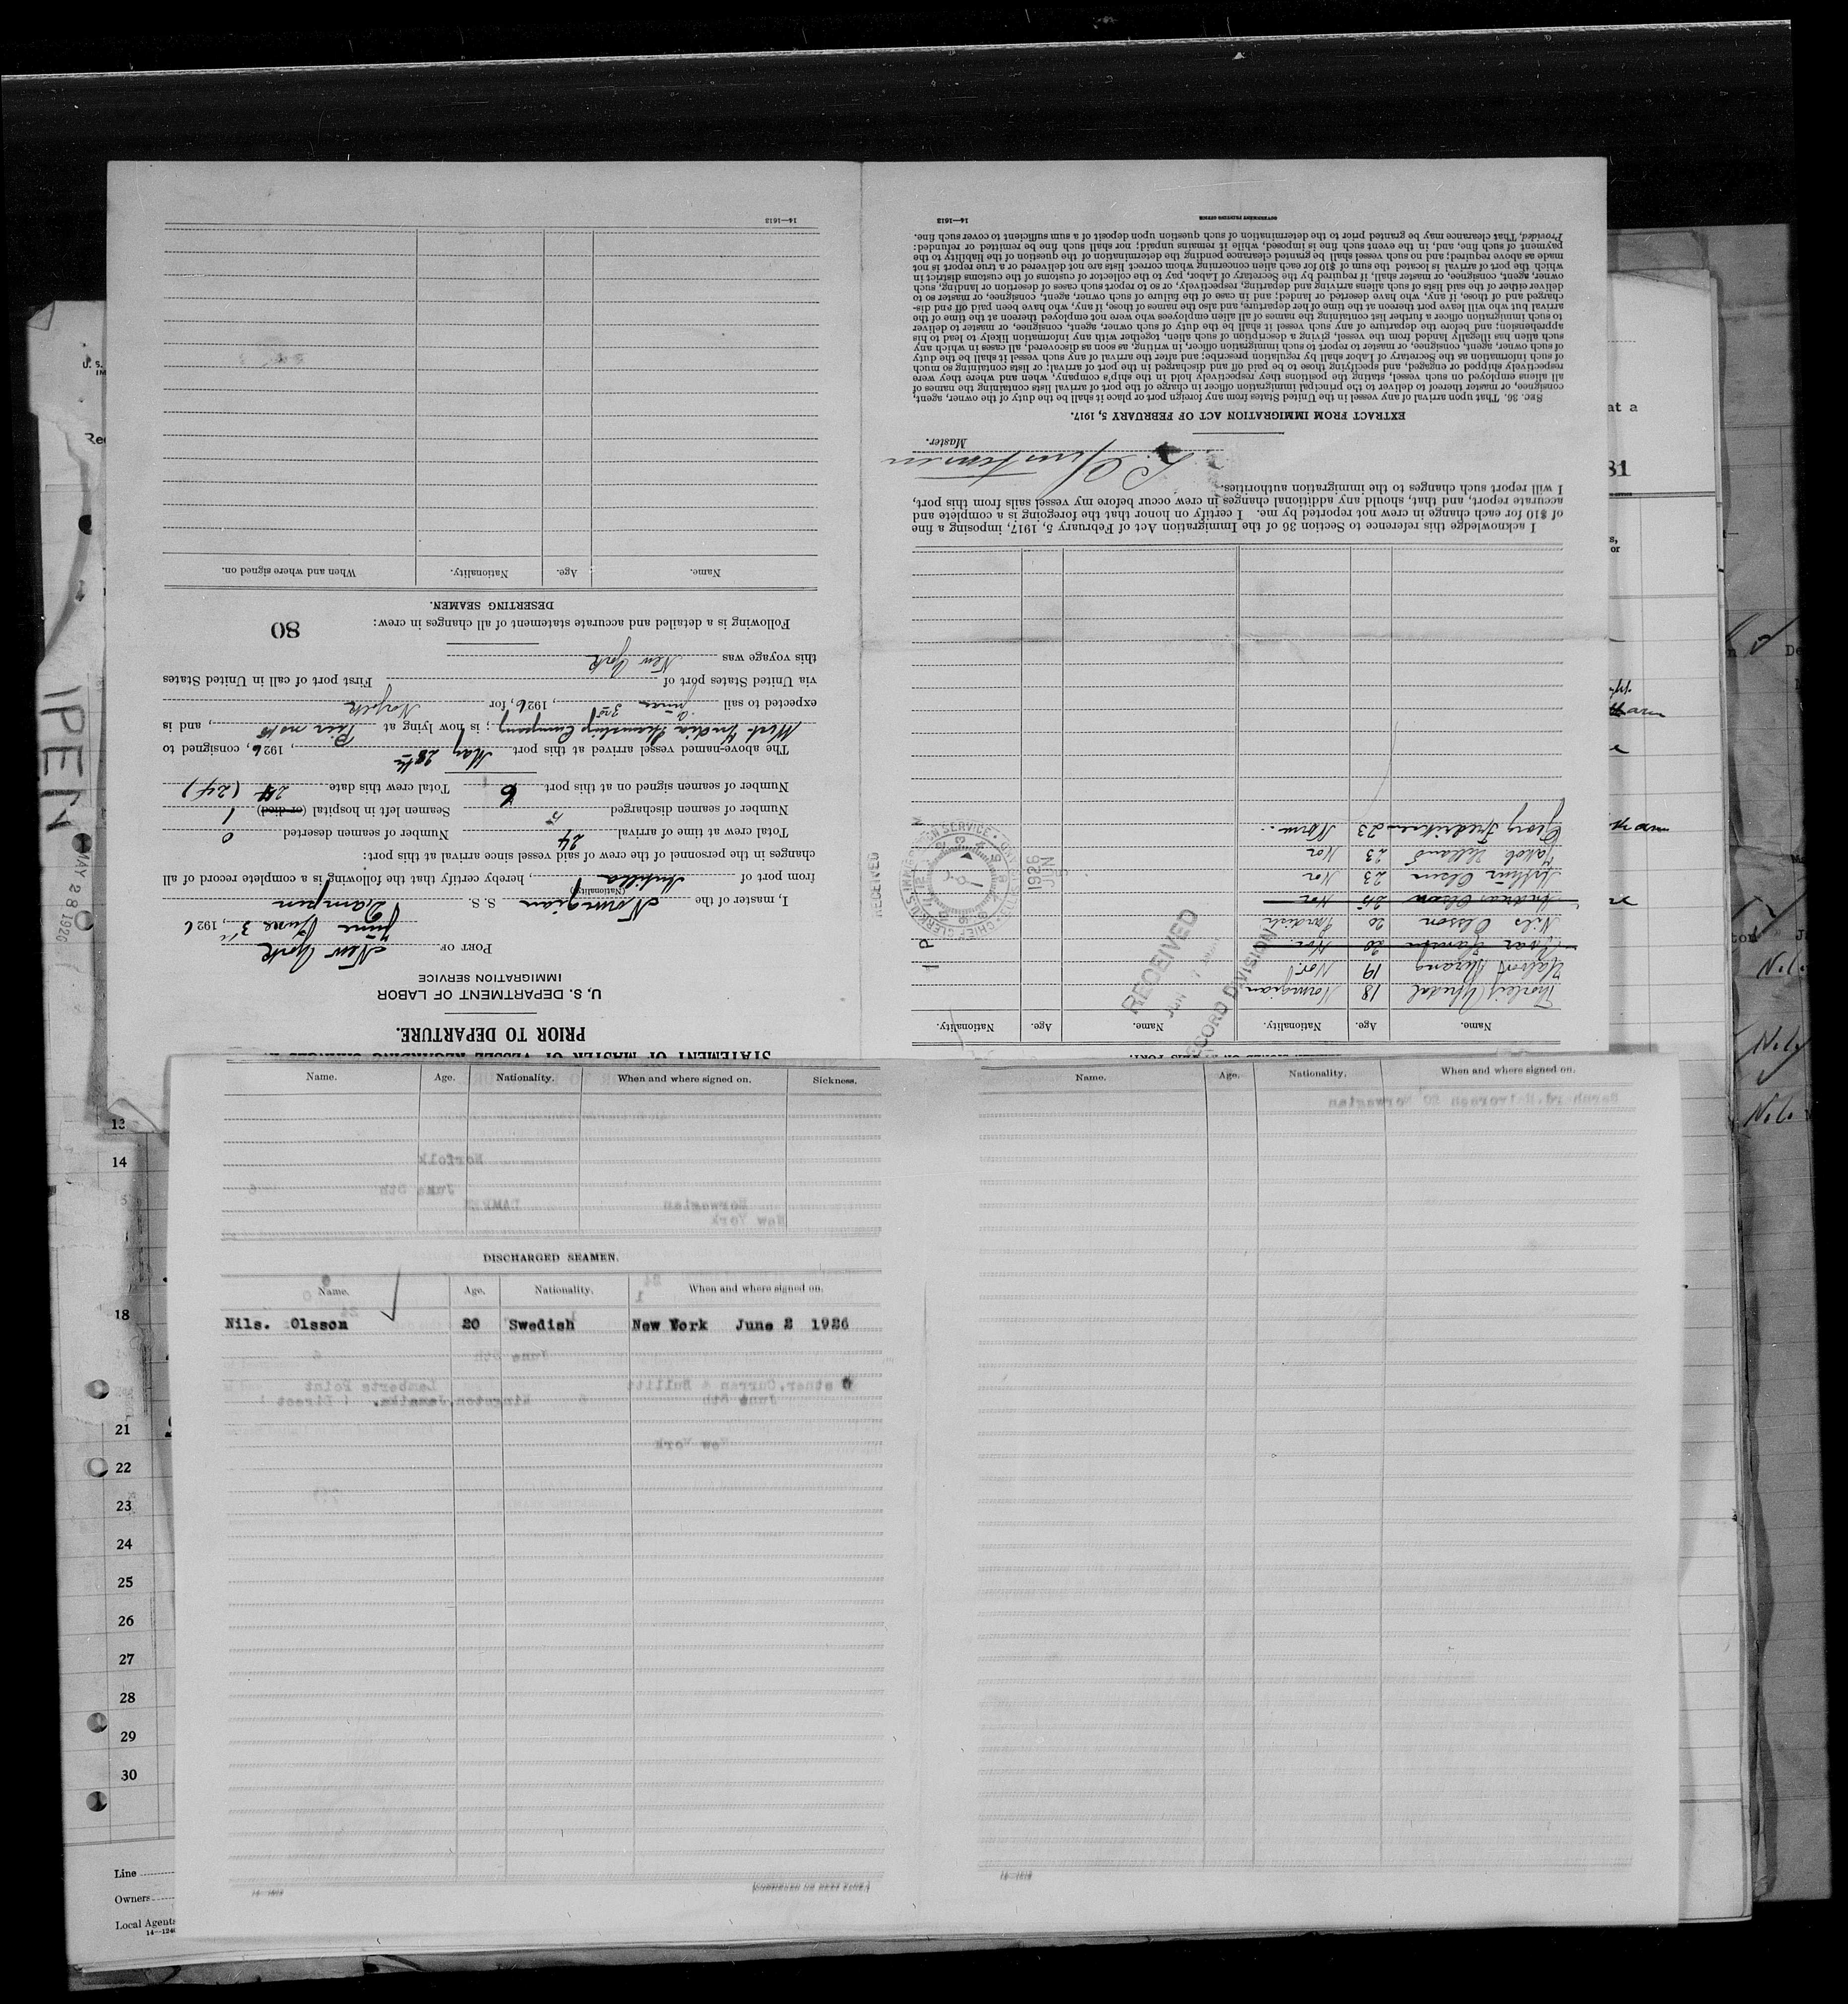 STATEMENT OF MASTER OF VESSEL REGARDING CHANGES
PRIOR TO DEPARTURE.
U. S. DEPARTMENT OF LABOR
IMMIGRATION SERVICE
PORT OF New York
June 3, 1926
I, master of the Norwegian S. S.
(Nationality)
from port of Antilla, hereby certify that the following is a complete record of all
changes in the personnel of the crew of said vessel since arrival at this port:
Total crew at time of arrival 24 Number of seamen deserted 0
Number of seamen discharged 5 Seamen left in hospital (or died) 1
Number of seamen signed on at this port 6 Total crew this date 24 (24)
The above-named vessel arrived at this port May 28th, 1926, consigned to
West India Steamship Company; is now lying at Pier no 18, and is
expected to sail June 3rd, 1926, for Norfolk
via United States port of First port of call in United States
this voyage was New York
Following is a detailed and accurate statement of all changes in crew:
80
DESERTING SEAMEN.
Name. Age. Nationality. When and where signed on.
14—1613
Name. Age. Nationality. Name. Age. Nationality.
18 Norwegian
Halvort 19 Nor.
20 Nor.
Nils Olsson 20
Andreas Olsen 25 Nor.
Olsen 23 Nor
Jakob 23 Nor
Georg Fredriksen 23 Norw.
RECEIVED
JUN
RECORD DIVISION
RECEIVED
1926
JUN
5
1 P
I acknowledge this reference to Section 36 of the Immigration Act of February 5, 1917, imposing a fine
of $10 for each change in crew not reported by me. I certify on honor that the foregoing is a complete and
accurate report, and that, should any additional changes in crew occur before my vessel sails from this port,
I will report such changes to the immigration authorities.
Master.
EXTRACT FROM IMMIGRATION ACT OF FEBRUARY 5, 1917.
SEC. 36. That upon arrival of any vessel in the United States from any foreign port or place it shall be the duty of the owner, agent,
consignee, or master thereof to deliver to the principal immigration officer in charge of the port of arrival lists containing the names of
all aliens employed on such vessel, stating the positions they respectively hold in the ship's company, when and where they were
respectively shipped or engaged, and specifying those to be paid off and discharged in the port of arrival; or lists containing so much
of such information as the Secretary of Labor shall by regulation prescribe; and after the arrival of any such vessel it shall be the duty
of such owner, agent, consignee, or master to report to such immigration officer, in writing, as soon as discovered, all cases in which any
such alien has illegally landed from the vessel, giving a description of such alien, together with any information likely to lead to his
apprehension; and before the departure of any such vessel it shall be the duty of such owner, agent, consignee, or master to deliver
to such immigration officer a further list containing the names of all alien employees who were not employed thereon at the time of the
arrival but who will leave port thereon at the time of her departure, and also the names of those, if any, who have been paid off and dis-
charged and of those, if any, who have deserted or landed; and in case of the failure of such owner, agent, consignee, or master so to
deliver either of the said lists of such aliens arriving and departing, respectively, or so to report such cases of desertion or landing, such
owner, agent, consignee, or master shall, if required by the Secretary of Labor, pay to the collector of customs of the customs district in
which the port of arrival is located the sum of $10 for each alien concerning whom correct lists are not delivered or a true report is not
made as above required; and no such vessel shall be granted clearance pending the determination of the question of the liability to the
payment of such fine, and, in the event such fine is imposed, while it remains unpaid; nor shall such fine be remitted or refunded:
Provided, That clearance may be granted prior to the determination of such question upon deposit of a sum sufficient to cover such fine.
GOVERNMENT PRINTING OFFICE 14—1613
Name. Age. Nationality. When and where signed on. Sickness.
DISCHARGED SEAMEN.
Name. Age. Nationality. When and where signed on.
Nils. Olsson 20 Swedish New York June 2 1926
Name. Age. Nationality. When and where signed on.
MAY 28 1926
at a
81
13
14
18
21
22
23
24
25
26
27
28
29
30
Line
Owners
Local Agents